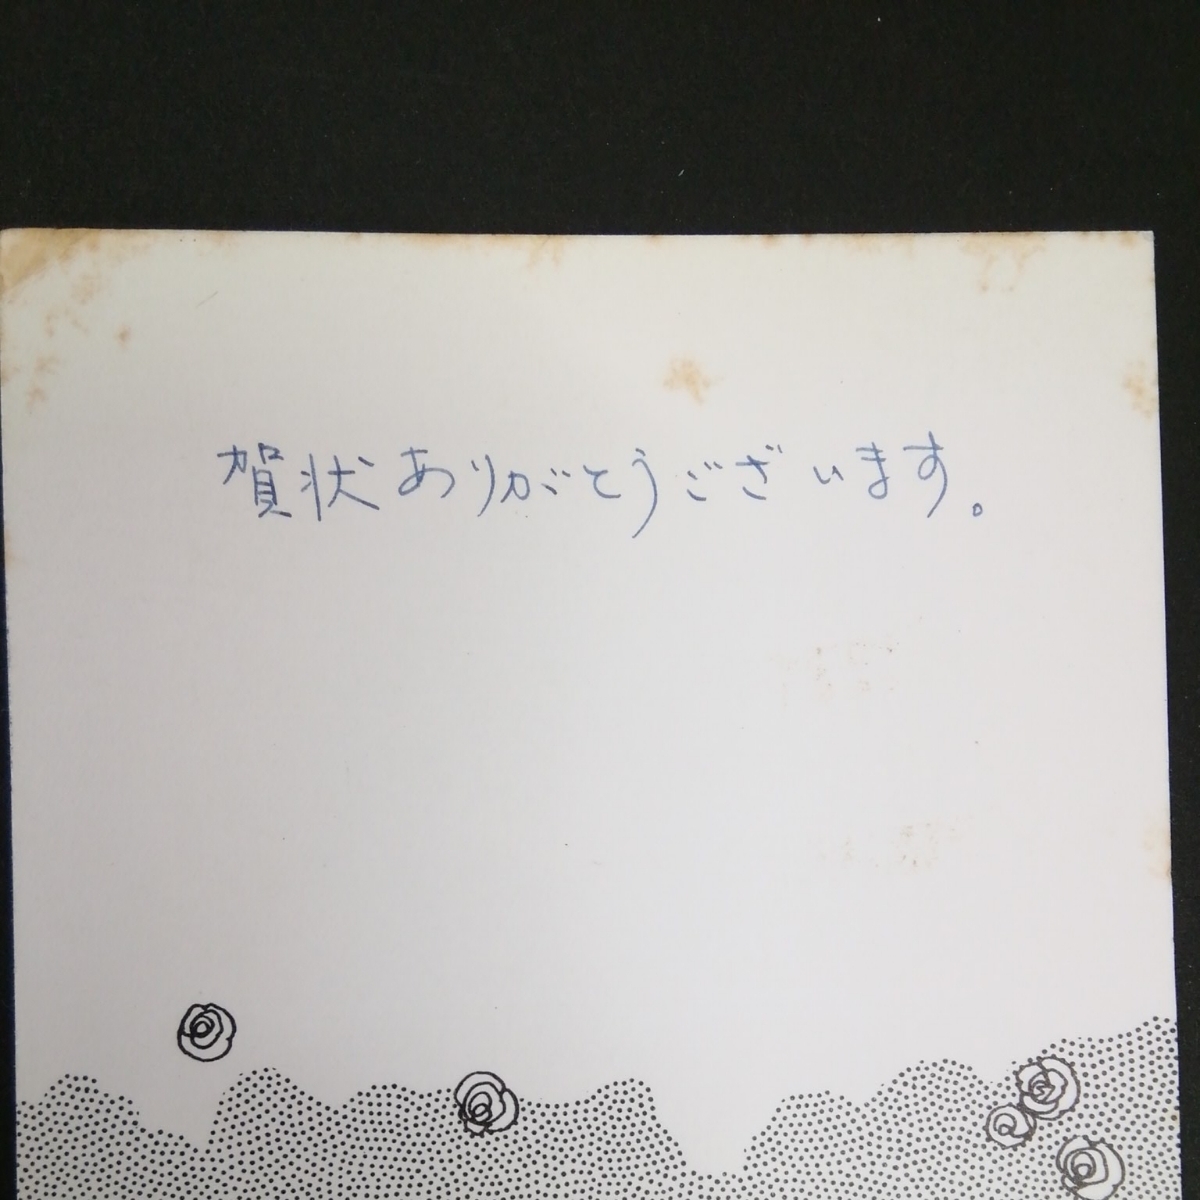 賀状ありがとうございます。